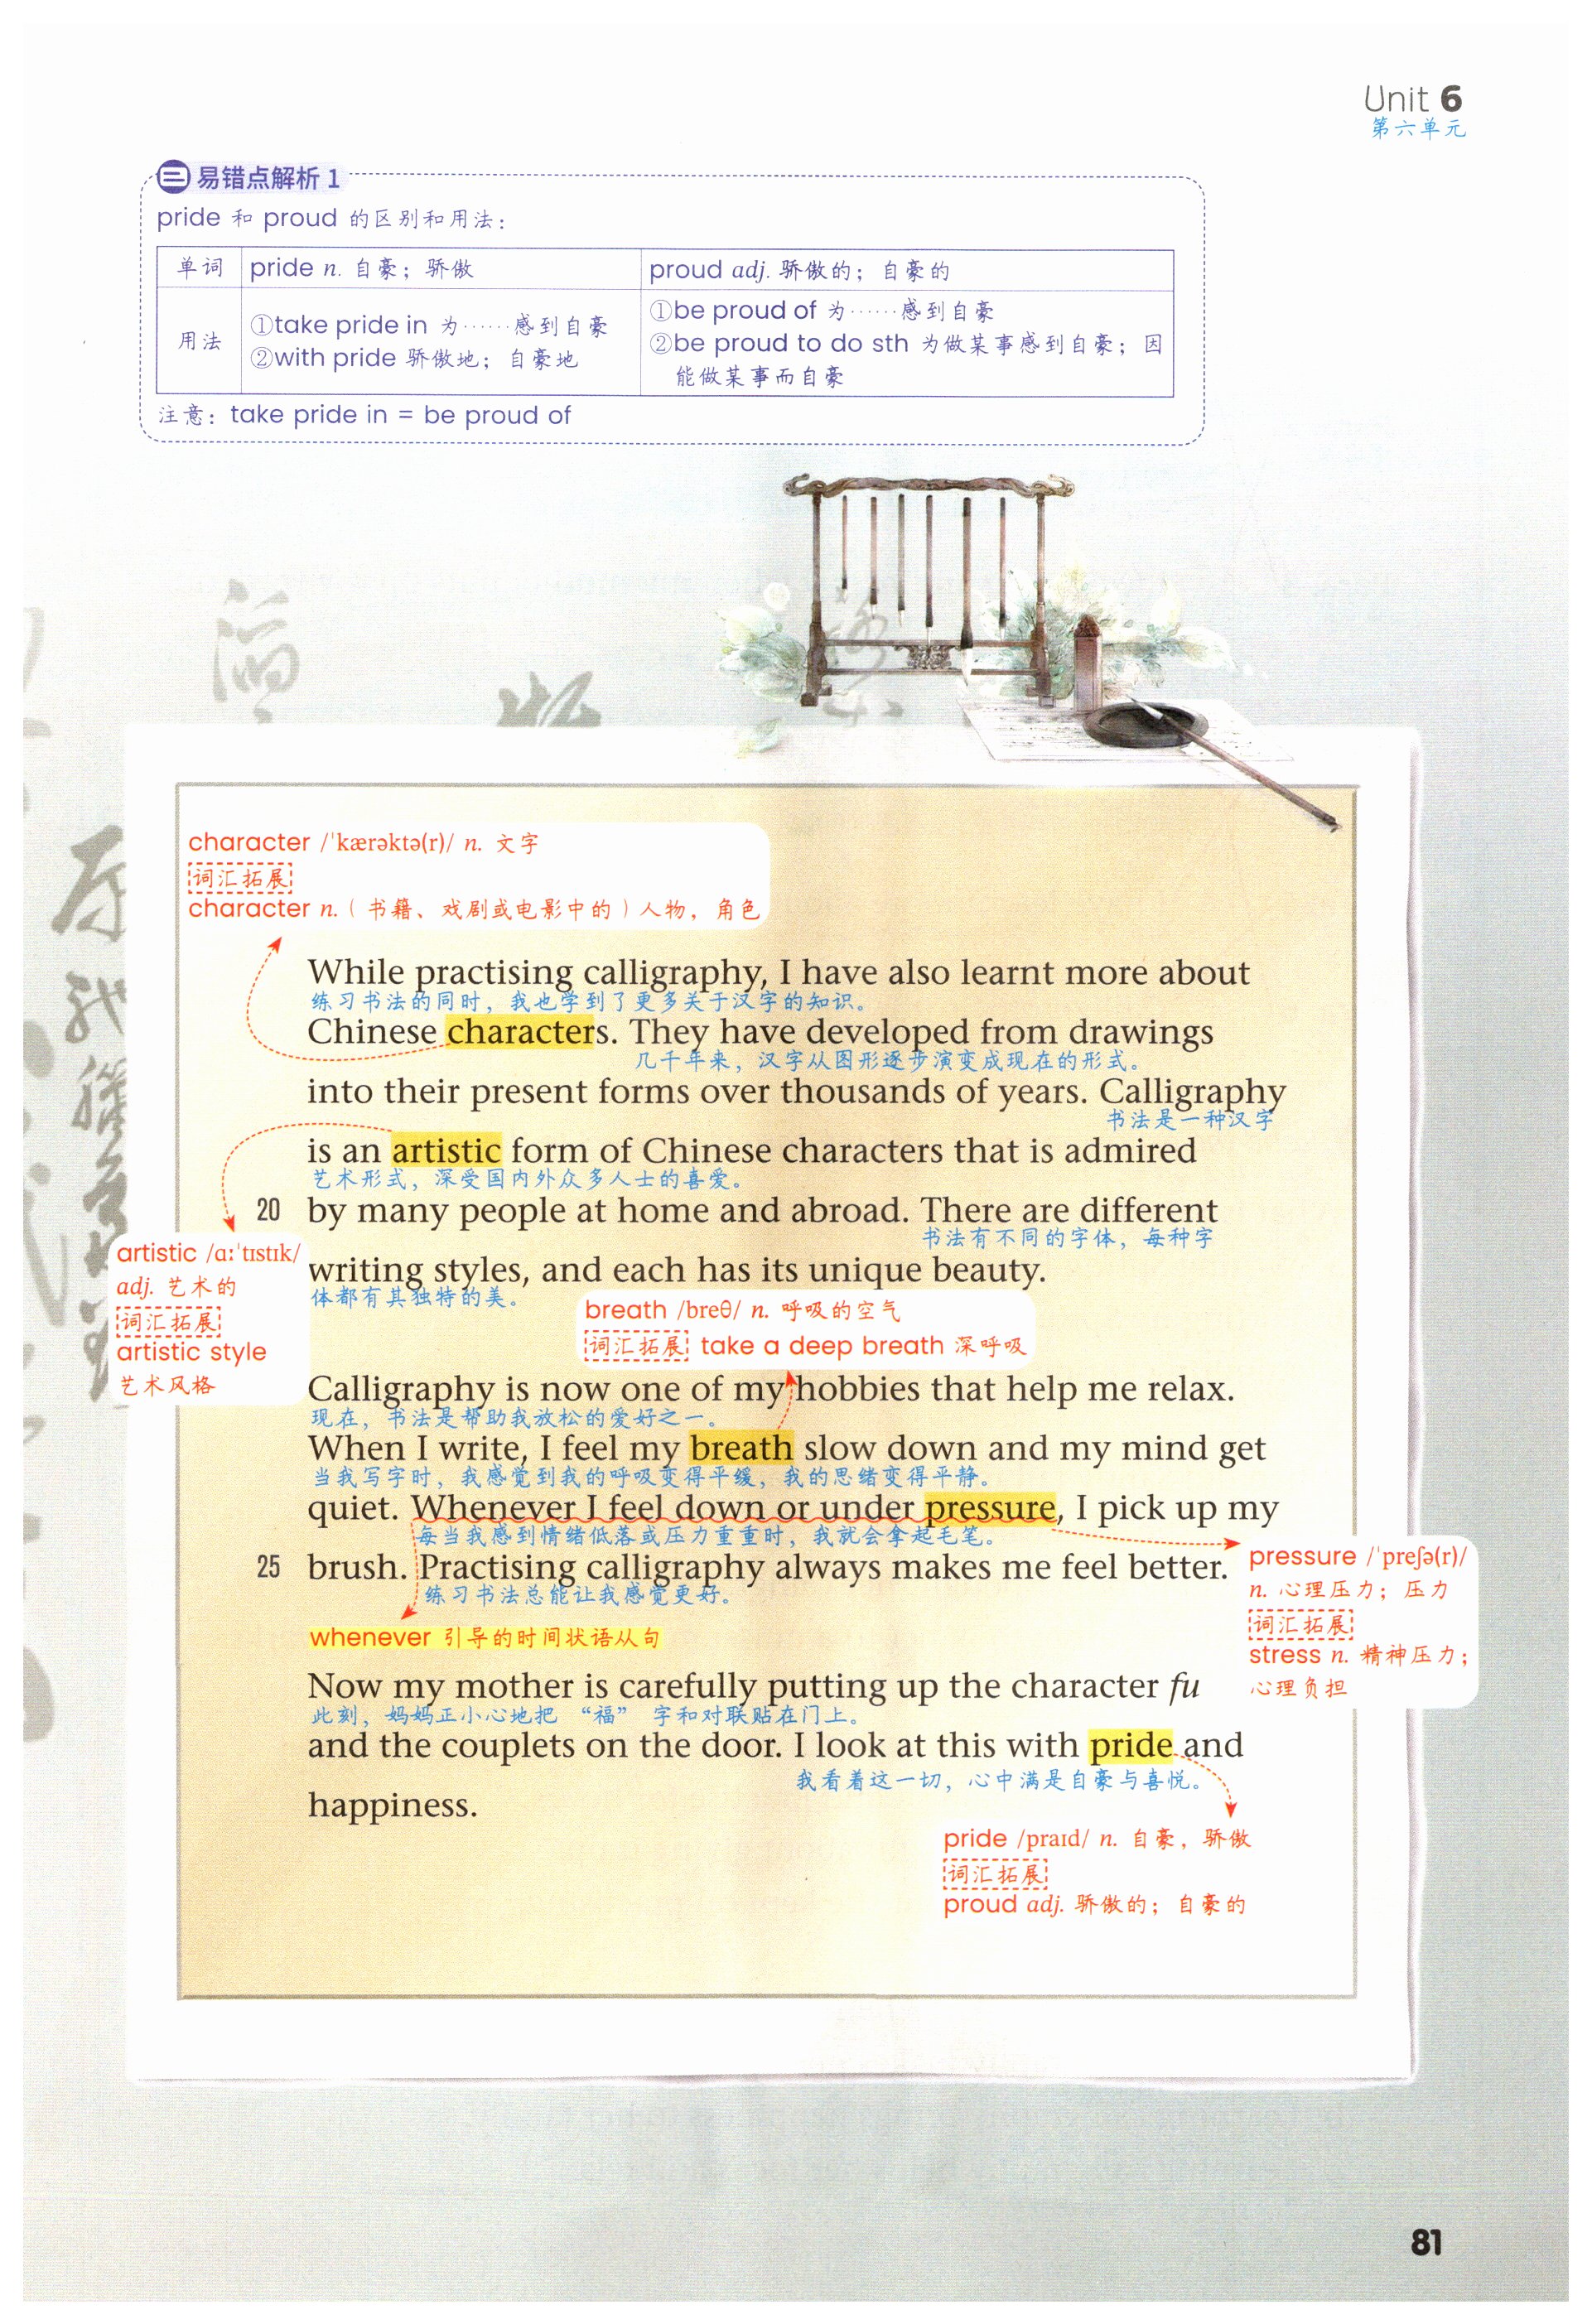 Unit 6
第六单元
易错点解析 1
pride 和 proud 的区别和用法：
单词 pride n. 自豪；骄傲 proud adj. 骄傲的；自豪的
用法 ①take pride in 为……感到自豪
②with pride 骄傲地；自豪地
①be proud of 为……感到自豪
②be proud to do sth 为做某事感到自豪；因
能做某事而自豪
注意：take pride in = be proud of
character /ˈkærəktə(r)/ n. 文字
词汇拓展
character n.（书籍、戏剧或电影中的）人物，角色
While practising calligraphy, I have also learnt more about
练习书法的同时，我也学到了更多关于汉字的知识。
Chinese characters. They have developed from drawings
几千年来，汉字从图形逐步演变成现在的形式。
into their present forms over thousands of years. Calligraphy
书法是一种汉字
is an artistic form of Chinese characters that is admired
艺术形式，深受国内外众多人士的喜爱。
20 by many people at home and abroad. There are different
书法有不同的字体，每种字
writing styles, and each has its unique beauty.
体都有其独特的美。
artistic /ɑːˈtɪstɪk/
adj. 艺术的
词汇拓展
artistic style
艺术风格
breath /breθ/ n. 呼吸的空气
词汇拓展 take a deep breath 深呼吸
Calligraphy is now one of my hobbies that help me relax.
现在，书法是帮助我放松的爱好之一。
When I write, I feel my breath slow down and my mind get
当我写字时，我感觉到我的呼吸变得平缓，我的思绪变得平静。
quiet. Whenever I feel down or under pressure, I pick up my
每当我感到情绪低落或压力重重时，我就会拿起毛笔。
25 brush. Practising calligraphy always makes me feel better.
练习书法总能让我感觉更好。
whenever 引导的时间状语从句
pressure /ˈpreʃə(r)/
n. 心理压力；压力
词汇拓展
stress n. 精神压力；
心理负担
Now my mother is carefully putting up the character fu
此刻，妈妈正小心地把“福”字和对联贴在门上。
and the couplets on the door. I look at this with pride and
我看着这一切，心中满是自豪与喜悦。
happiness.
pride /praɪd/ n. 自豪，骄傲
词汇拓展
proud adj. 骄傲的；自豪的
81